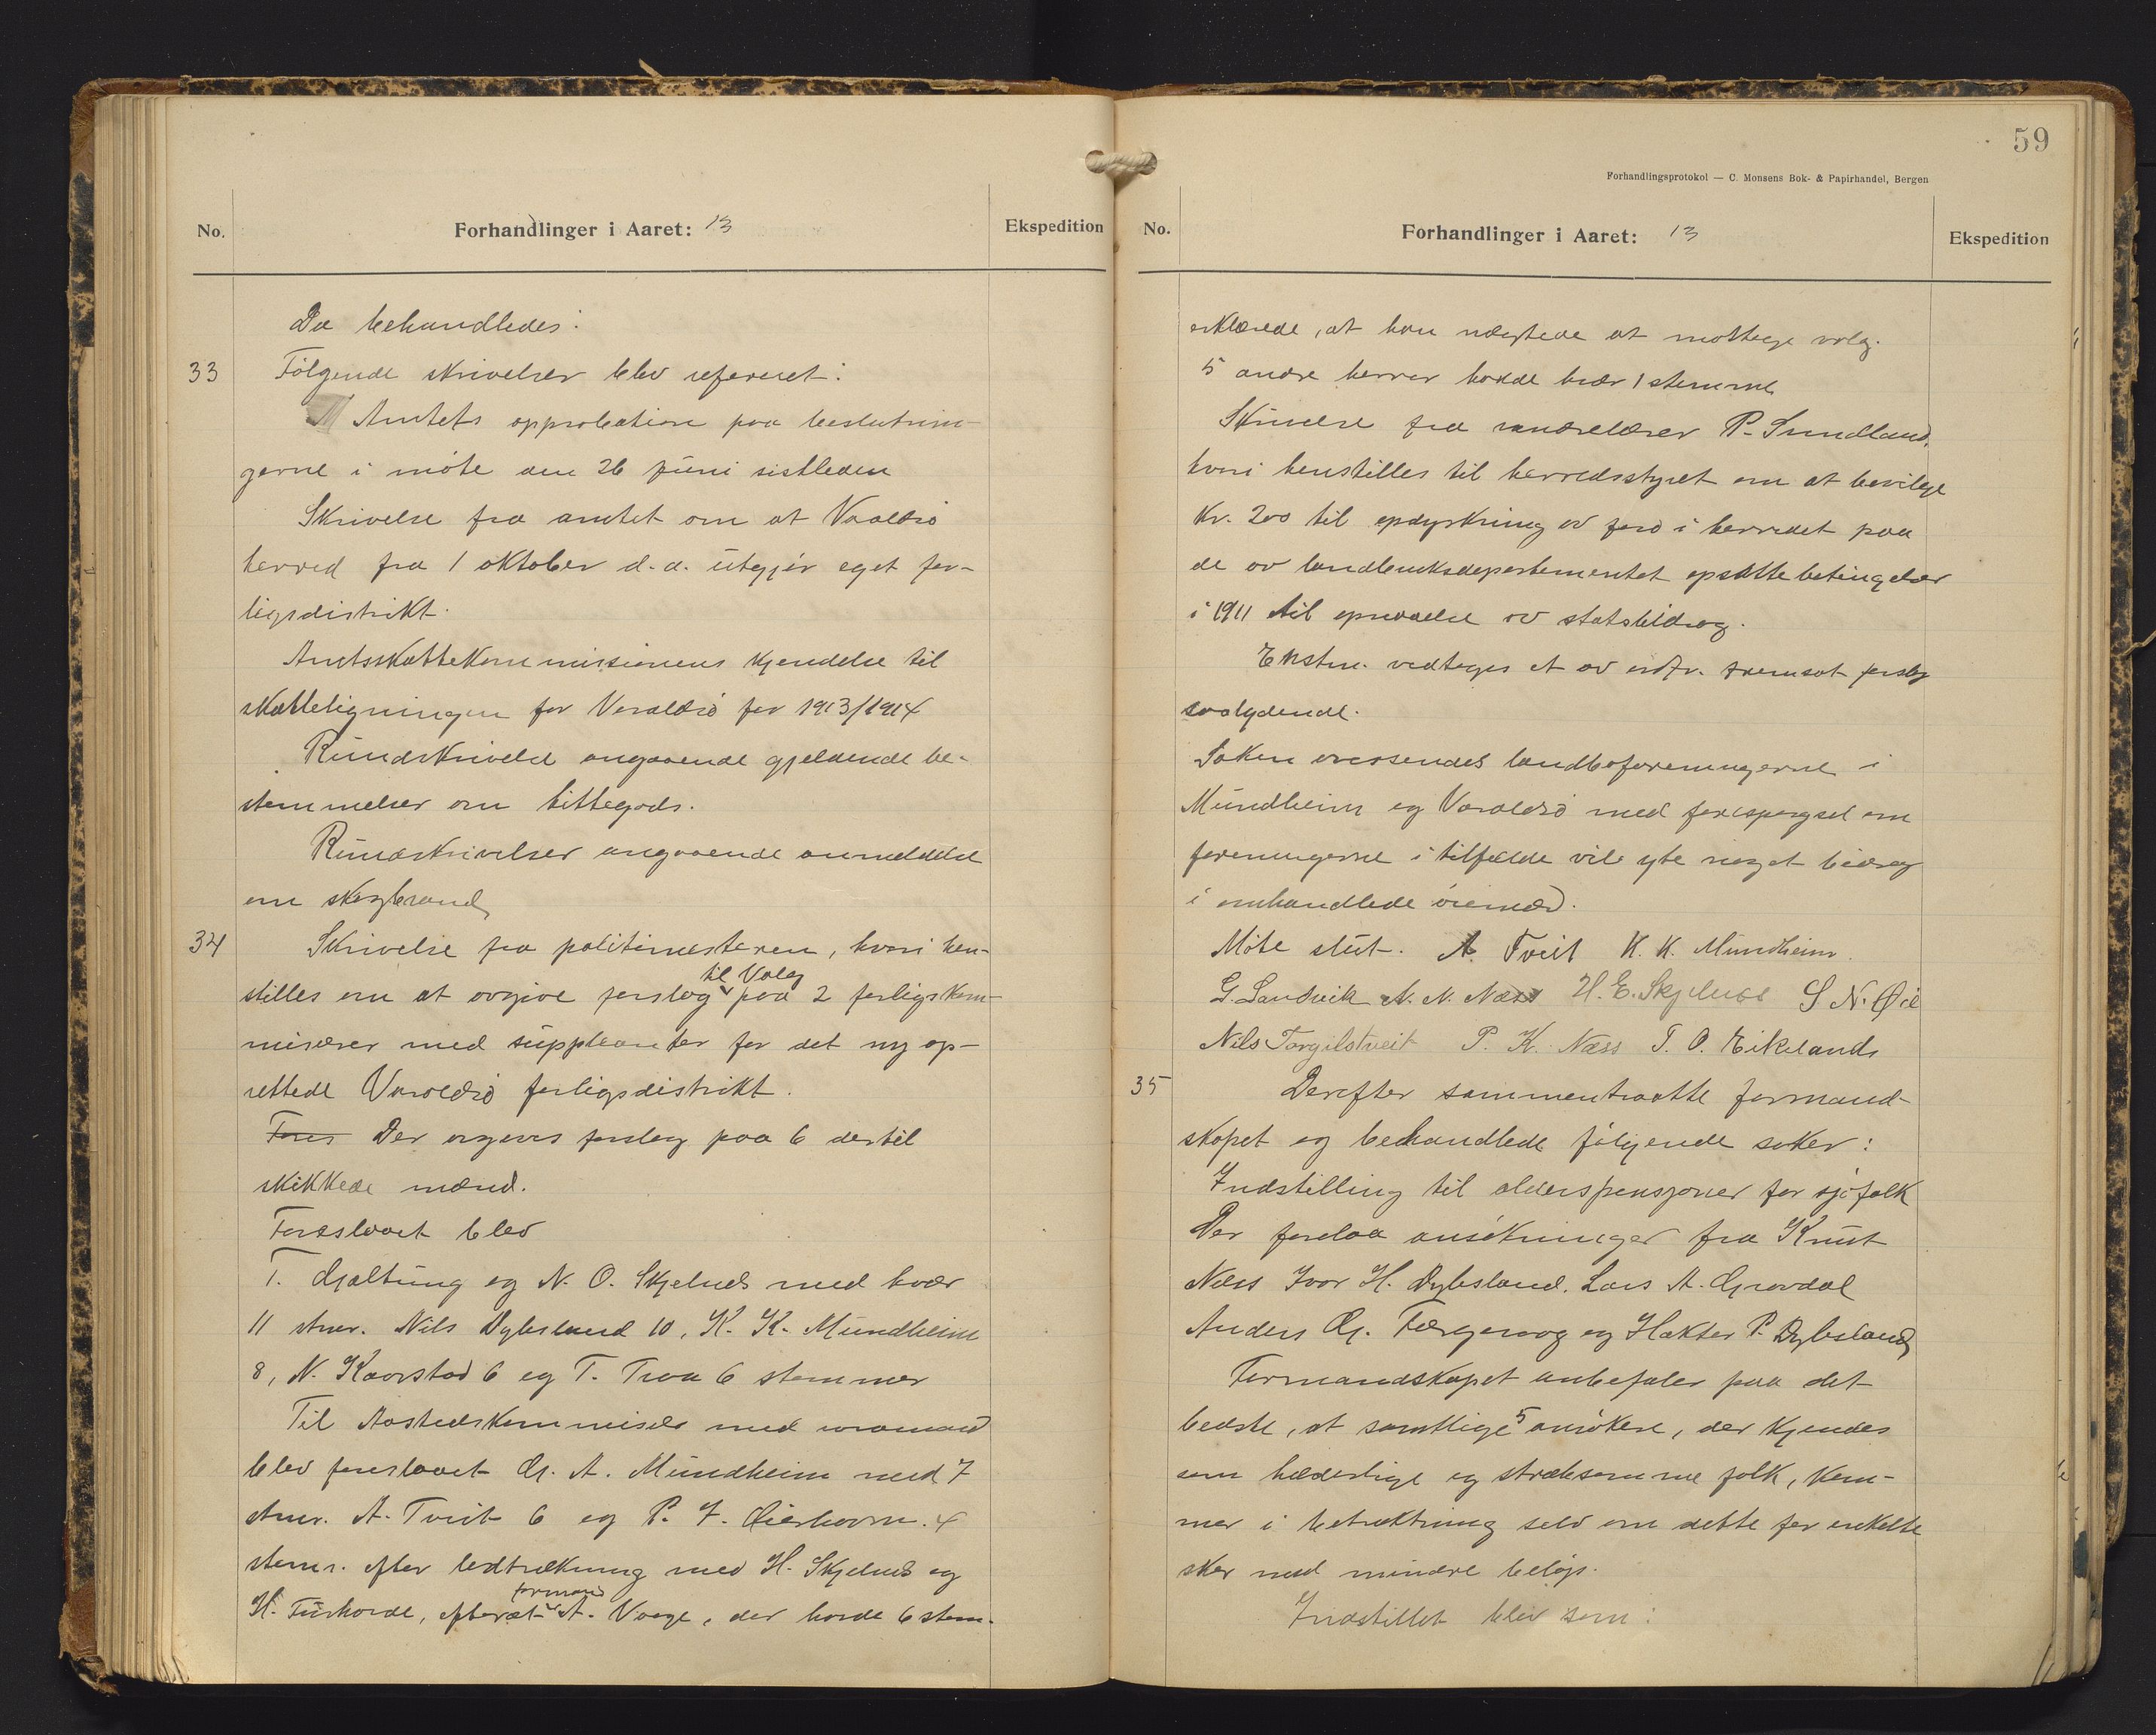 No.
Forhandlinger i Aaret: 13
Ekspedition
Da behandledes:
33 Følgende skrivelser blev referert:
Amtets approbation paa beslutnin-
gerne i møte den 26 juni sistleden
Skrivelse fra amtet om at Varaldsø
herred fra 1 oktober d.a. utgjør eget for-
ligsdistrikt.
Amtsskattekommissionens kjendelse til
skatteligningen for Varaldsø for 1913/1914
Rundskrivelse angaaende gjeldende be-
stemmelser om hittegods.
Rundskrivelser angaaende anmeldelse
om skogbrand
34 Skrivelse fra politimesteren, hvori hen-
stilles om at avgive forslag til Valg paa 2 forligskom-
misærer med suppleanter for det ny op-
rettede Varaldsø forligsdistrikt.
Fors Der avgives forslag paa 6 dertil
skikkede mænd.
Foreslaaet blev
T. Gjæltung og N. O. Skjelnes med hvær
11 stmr. Nils Dybsland 10, K. K. Mundheim
8, N. Kaarstad 6 og T. Traa 6 stemmer
Til Aastedskommisær med varamand
blev foreslaaet G. A. Mundheim med 7
stmr. A. Tveit 6 og P. J. Øierhavn. 4
stemr. efter lodtrækning med H. Skjelnes og
H. Turhorde, efterat formand A. Vaage, der havde 6 stem.
59
Forhandlingsprotokol — C. Monsens Bok- & Papirhandel, Bergen
No.
Forhandlinger i Aaret: 13
Ekspedition
erklærede, at han nægtede at mottage valg.
5 andre herrer hadde hvær 1 stemme
Skrivelse fra vandrelærer P. Sundland,
hvori henstilles til herredsstyret om at bevilge
Kr. 200 til opdyrkning av jord i herredet paa
de av landbruksdepartementet opsatte betingelser
i 1911 til opnaaelse av statsbidrag.
Enstm. vedtages et av ordfr. fremsat forslag
saalydende.
Saken oversendes landboforeningerne i
Mundheim og Varaldsø med forespørgsel om
foreningerne i tilfælde vile yte noget bidrag
i omhandlede øiemed.
Møte slut. A. Tveit K. K. Mundheim.
G. Sandvik A. N. Næss H. E. Skjelnes S N. Øie
Nils Torgilstveit P. K. Næss T. O. Eikelands
35 Derefter sammentraatte formand-
skapet og behandlede følgende saker:
Indstilling til alderspensjoner for sjøfolk
Der forelaa ansøkninger fra Knut
Næss Ivar H. Dybsland. Lars A. Gravdal
Anders G. Færgeraag og Hakter P. Dybsland
Formandskapet anbefaler paa det
bedste, at samtlige 5 ansøkere, der kjendes
som hæderlige og stræbsomme folk, kom-
mer i betraktning selv om dette for enkelte
sker med mindre beløp.
Indstillet blev som: